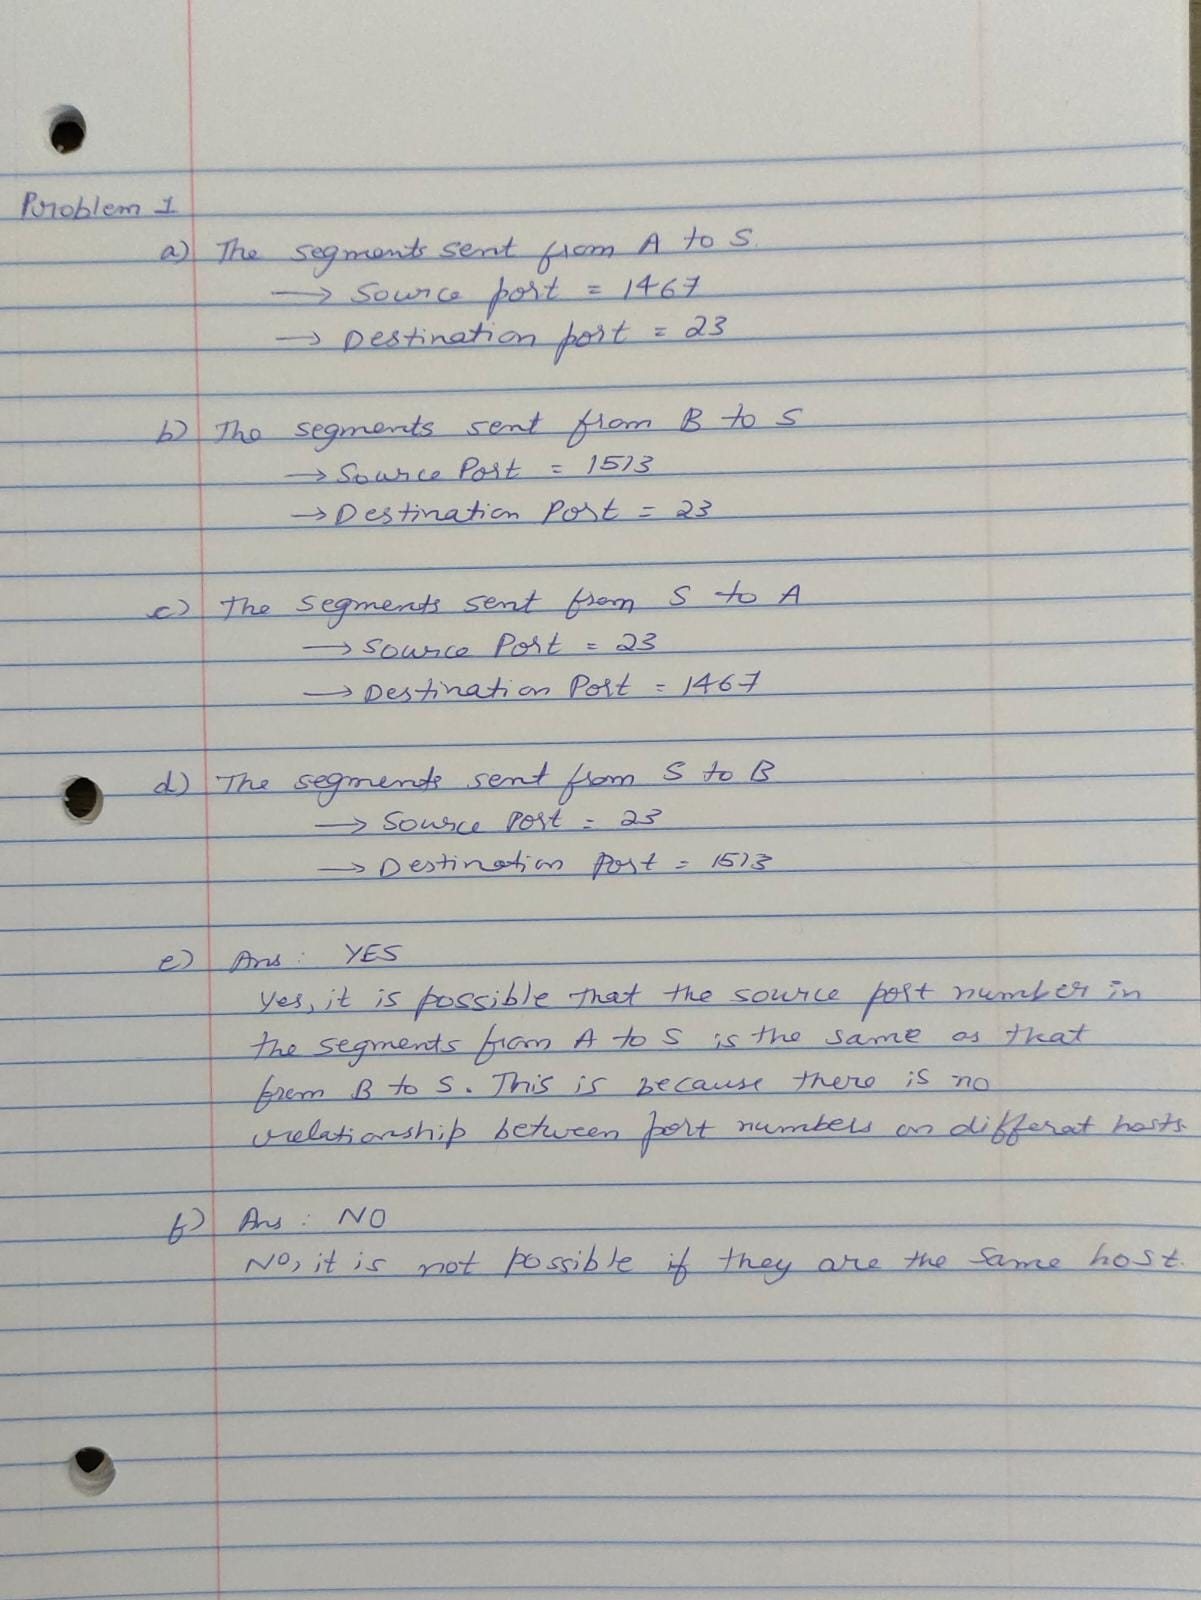 Problem 1
a) The segments sent from A to S.
→ Source port = 1467
→ Destination port = 23
b) The segments sent from B to S
→ Source Port = 1513
→ Destination Port = 23
c) The segments sent from S to A
→ Source Port = 23
→ Destination Port = 1467
d) The segments sent from S to B
→ Source Port = 23
→ Destination Port = 1513
e) Ans : YES
Yes, it is possible that the source port number in
the segments from A to S is the same as that
from B to S. This is because there is no
relationship between port numbers on differat hosts.
f) Ans : NO
No, it is not possible if they are the same host.